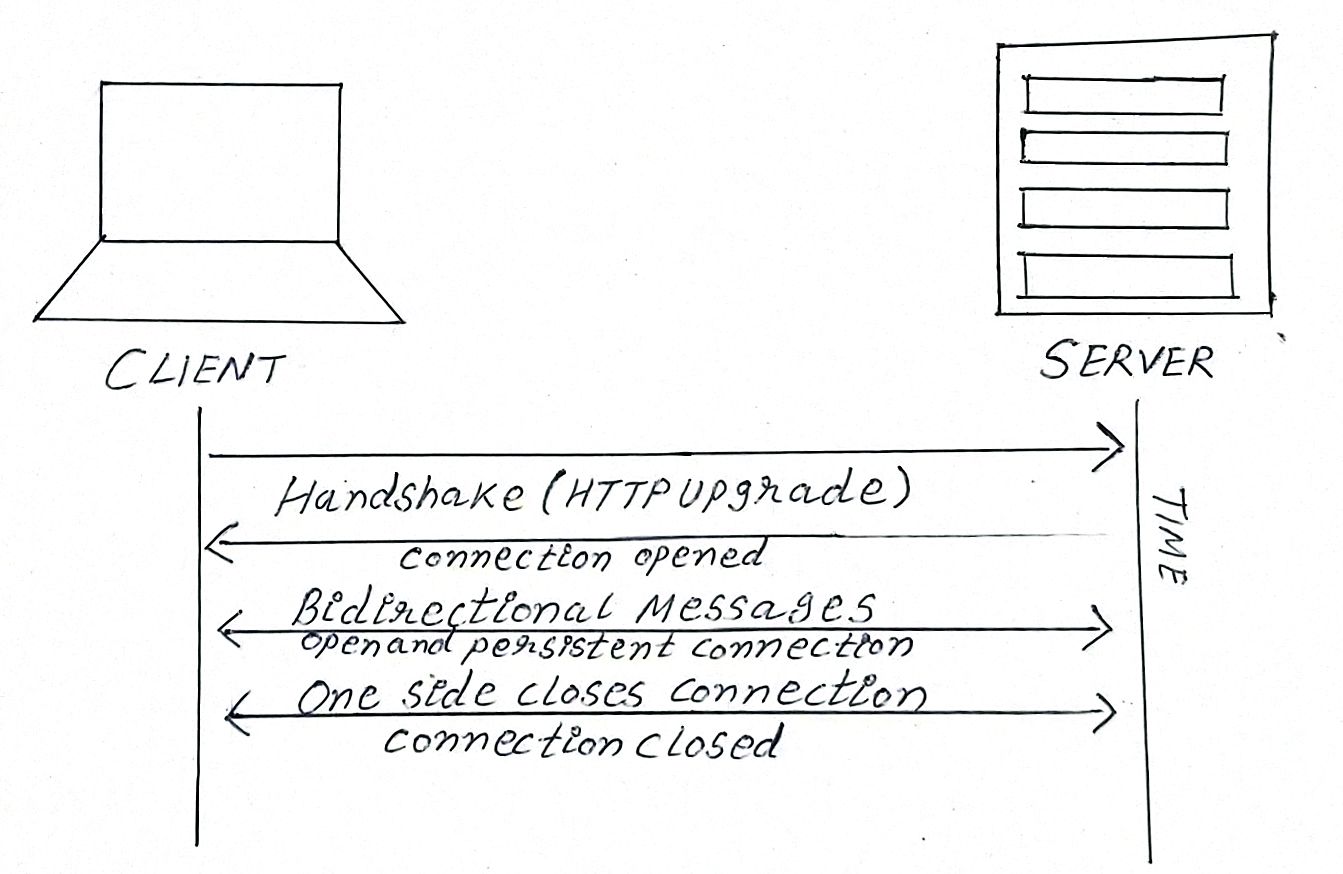 CLIENT
SERVER
Handshake (HTTP Upgrade)
connection opened
TIME
Bidirectional Messages
open and persistent connection
One side closes connection
connection closed